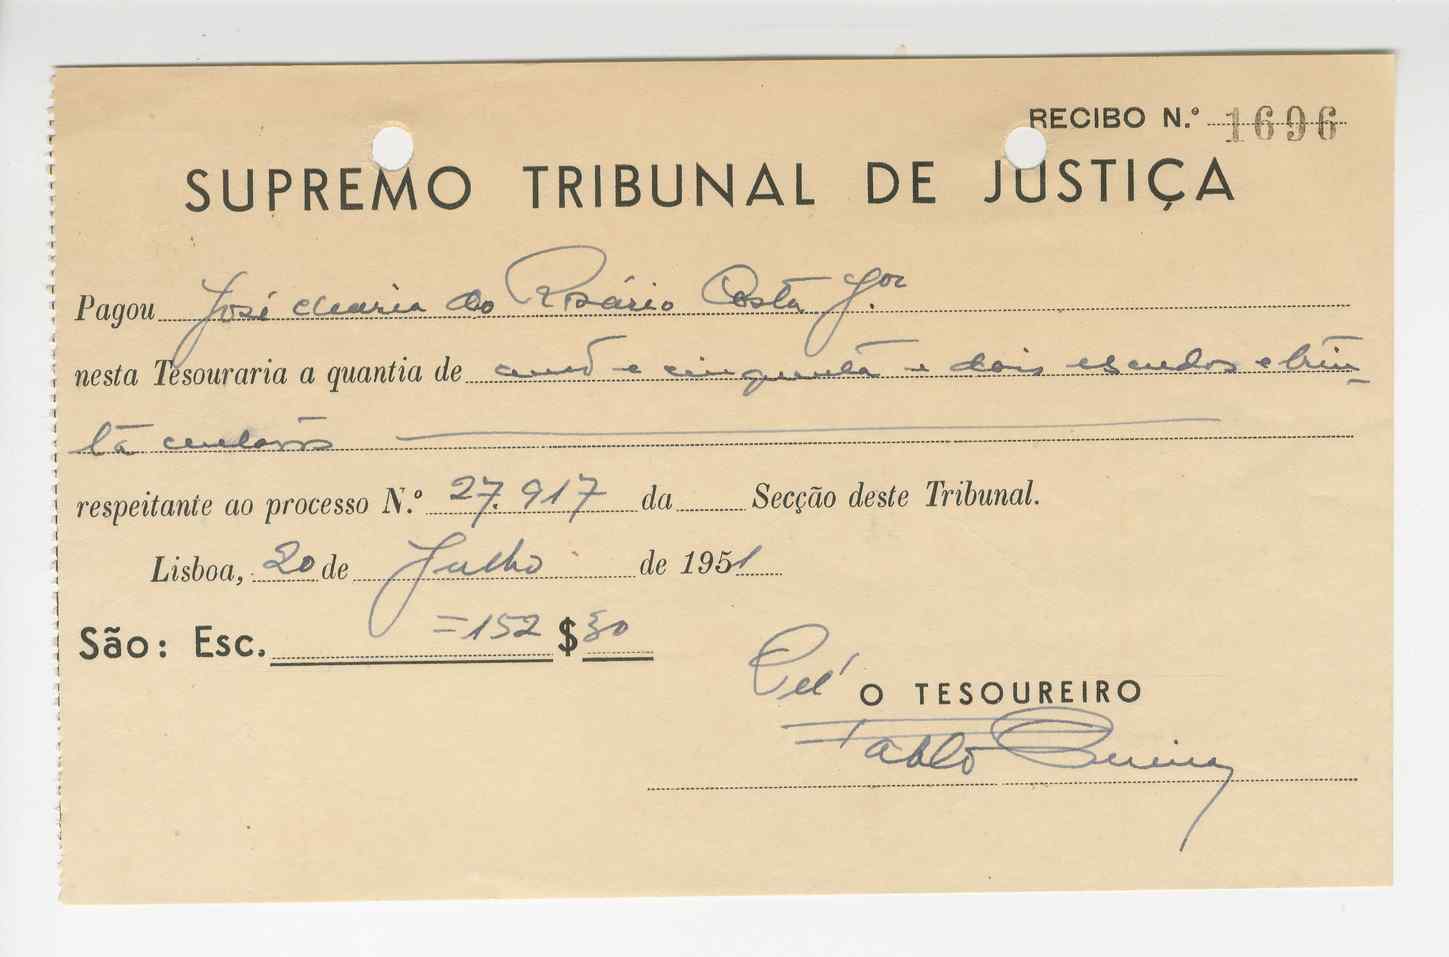 RECIBO N.º 1696
SUPREMO TRIBUNAL DE JUSTIÇA
Pagou José Maria do Rosário Costa Jor
nesta Tesouraria a quantia de cento e cinquenta e dois escudos e trin-
ta centavos
respeitante ao processo N.º 27.917 da Secção deste Tribunal.
Lisboa, 20 de Julho de 1951
São: Esc. =152$30
Pel' O TESOUREIRO
Pablo